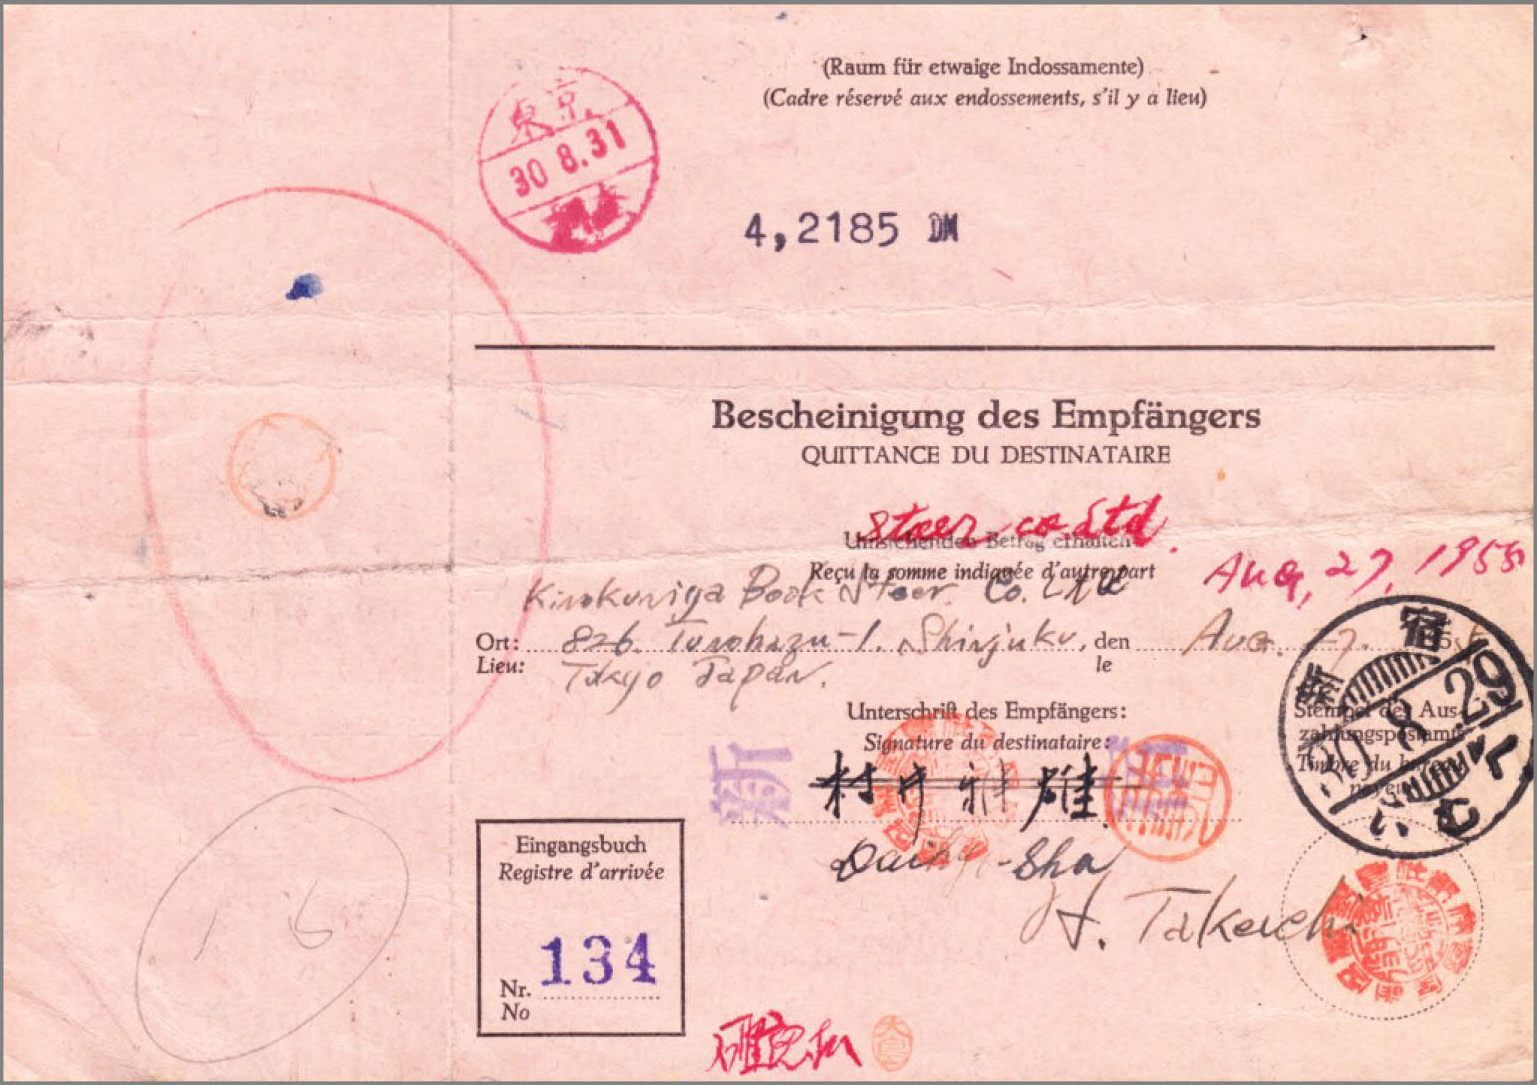 (Raum für etwaige Indossamente)
(Cadre réservé aux endossements, s'il y a lieu)
東京
30 8.31
4,2185 DM
Bescheinigung des Empfängers
QUITTANCE DU DESTINATAIRE
Steer co Ltd.
Umstehenden Betrag erhalten
Reçu la somme indiquée d'autre part
Aug, 27, 1955
Book Steer Co. Ltd
Ort: 826 -1. Shinjuku, den Aug.
Lieu: Tokyo Japan. le
新宿
30.8.29
Unterschrift des Empfängers:
Signature du destinataire:
Stempel des Aus-
zahlungspostamts
Timbre du bureau
新
村井 雄
-Sha
H. Takeuchi
Eingangsbuch
Registre d'arrivée
Nr. 134
No
16